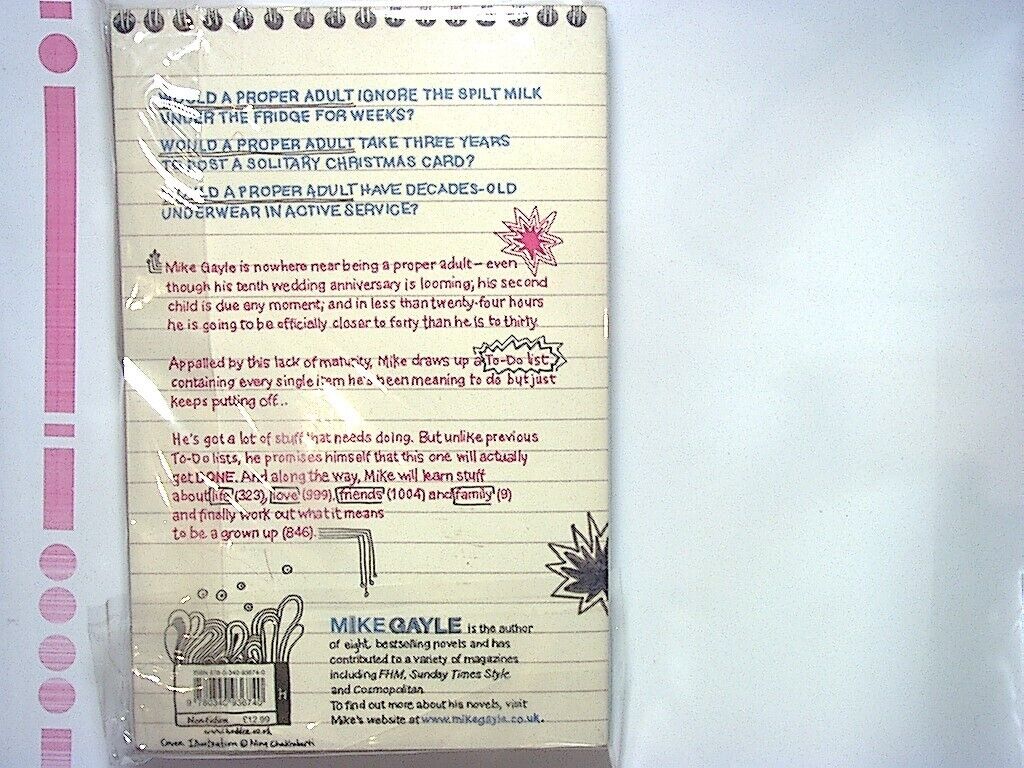 WOULD A PROPER ADULT IGNORE THE SPILT MILK
UNDER THE FRIDGE FOR WEEKS?
WOULD A PROPER ADULT TAKE THREE YEARS
TO POST A SOLITARY CHRISTMAS CARD?
WOULD A PROPER ADULT HAVE DECADES-OLD
UNDERWEAR IN ACTIVE SERVICE?
Mike Gayle is nowhere near being a proper adult – even
though his tenth wedding anniversary is looming; his second
child is due any moment; and in less than twenty-four hours
he is going to be officially closer to forty than he is to thirty.
Appalled by this lack of maturity, Mike draws up a To-Do list,
containing every single item he's been meaning to do but just
keeps putting off...
He's got a lot of stuff that needs doing. But unlike previous
To-Do lists, he promises himself that this one will actually
get DONE. And along the way, Mike will learn stuff
about life (323), love (999), friends (1004) and family (9)
and finally work out what it means
to be a grown up (846).
MIKE GAYLE is the author
of eight bestselling novels and has
contributed to a variety of magazines
including FHM, Sunday Times Style
and Cosmopolitan
To find out more about his novels, visit
Mike's website at www.mikegayle.co.uk.
ISBN 978-0-340-93674-0
9 780340 936740
Non-fiction £12.99
Cover Illustration ©